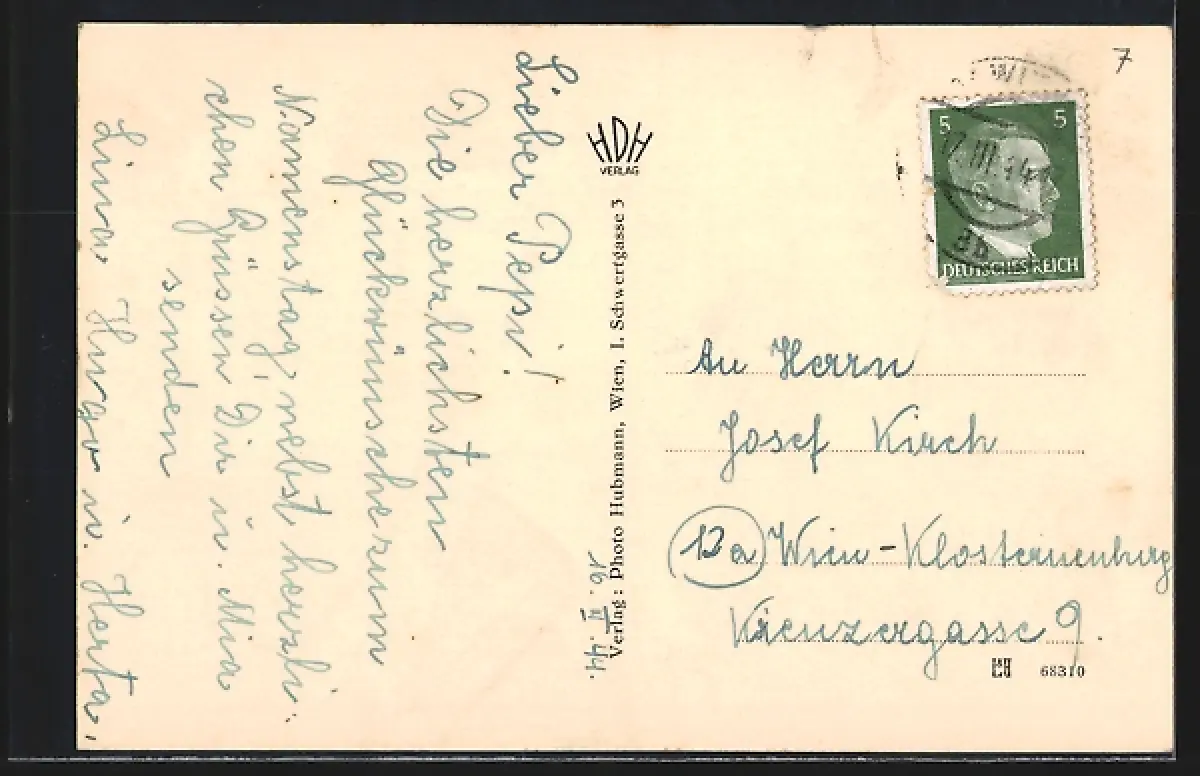 Lieber Pepi!
Die herzlichsten
Glückwünsche zum
Namenstag, nebst herzli-
chen Grüssen Dir u. Mia
senden
Lina, Hugo u. Herta,
16. III. 44.
HDH
VERLAG
Verlag: Photo Hubmann, Wien, I. Schwertgasse 3
7
WI
5 5
17. III. 44
DEUTSCHES REICH
An Herrn
Josef Kirch
12a Wien-Klosterneuburg
Kreuzergasse 9.
68310